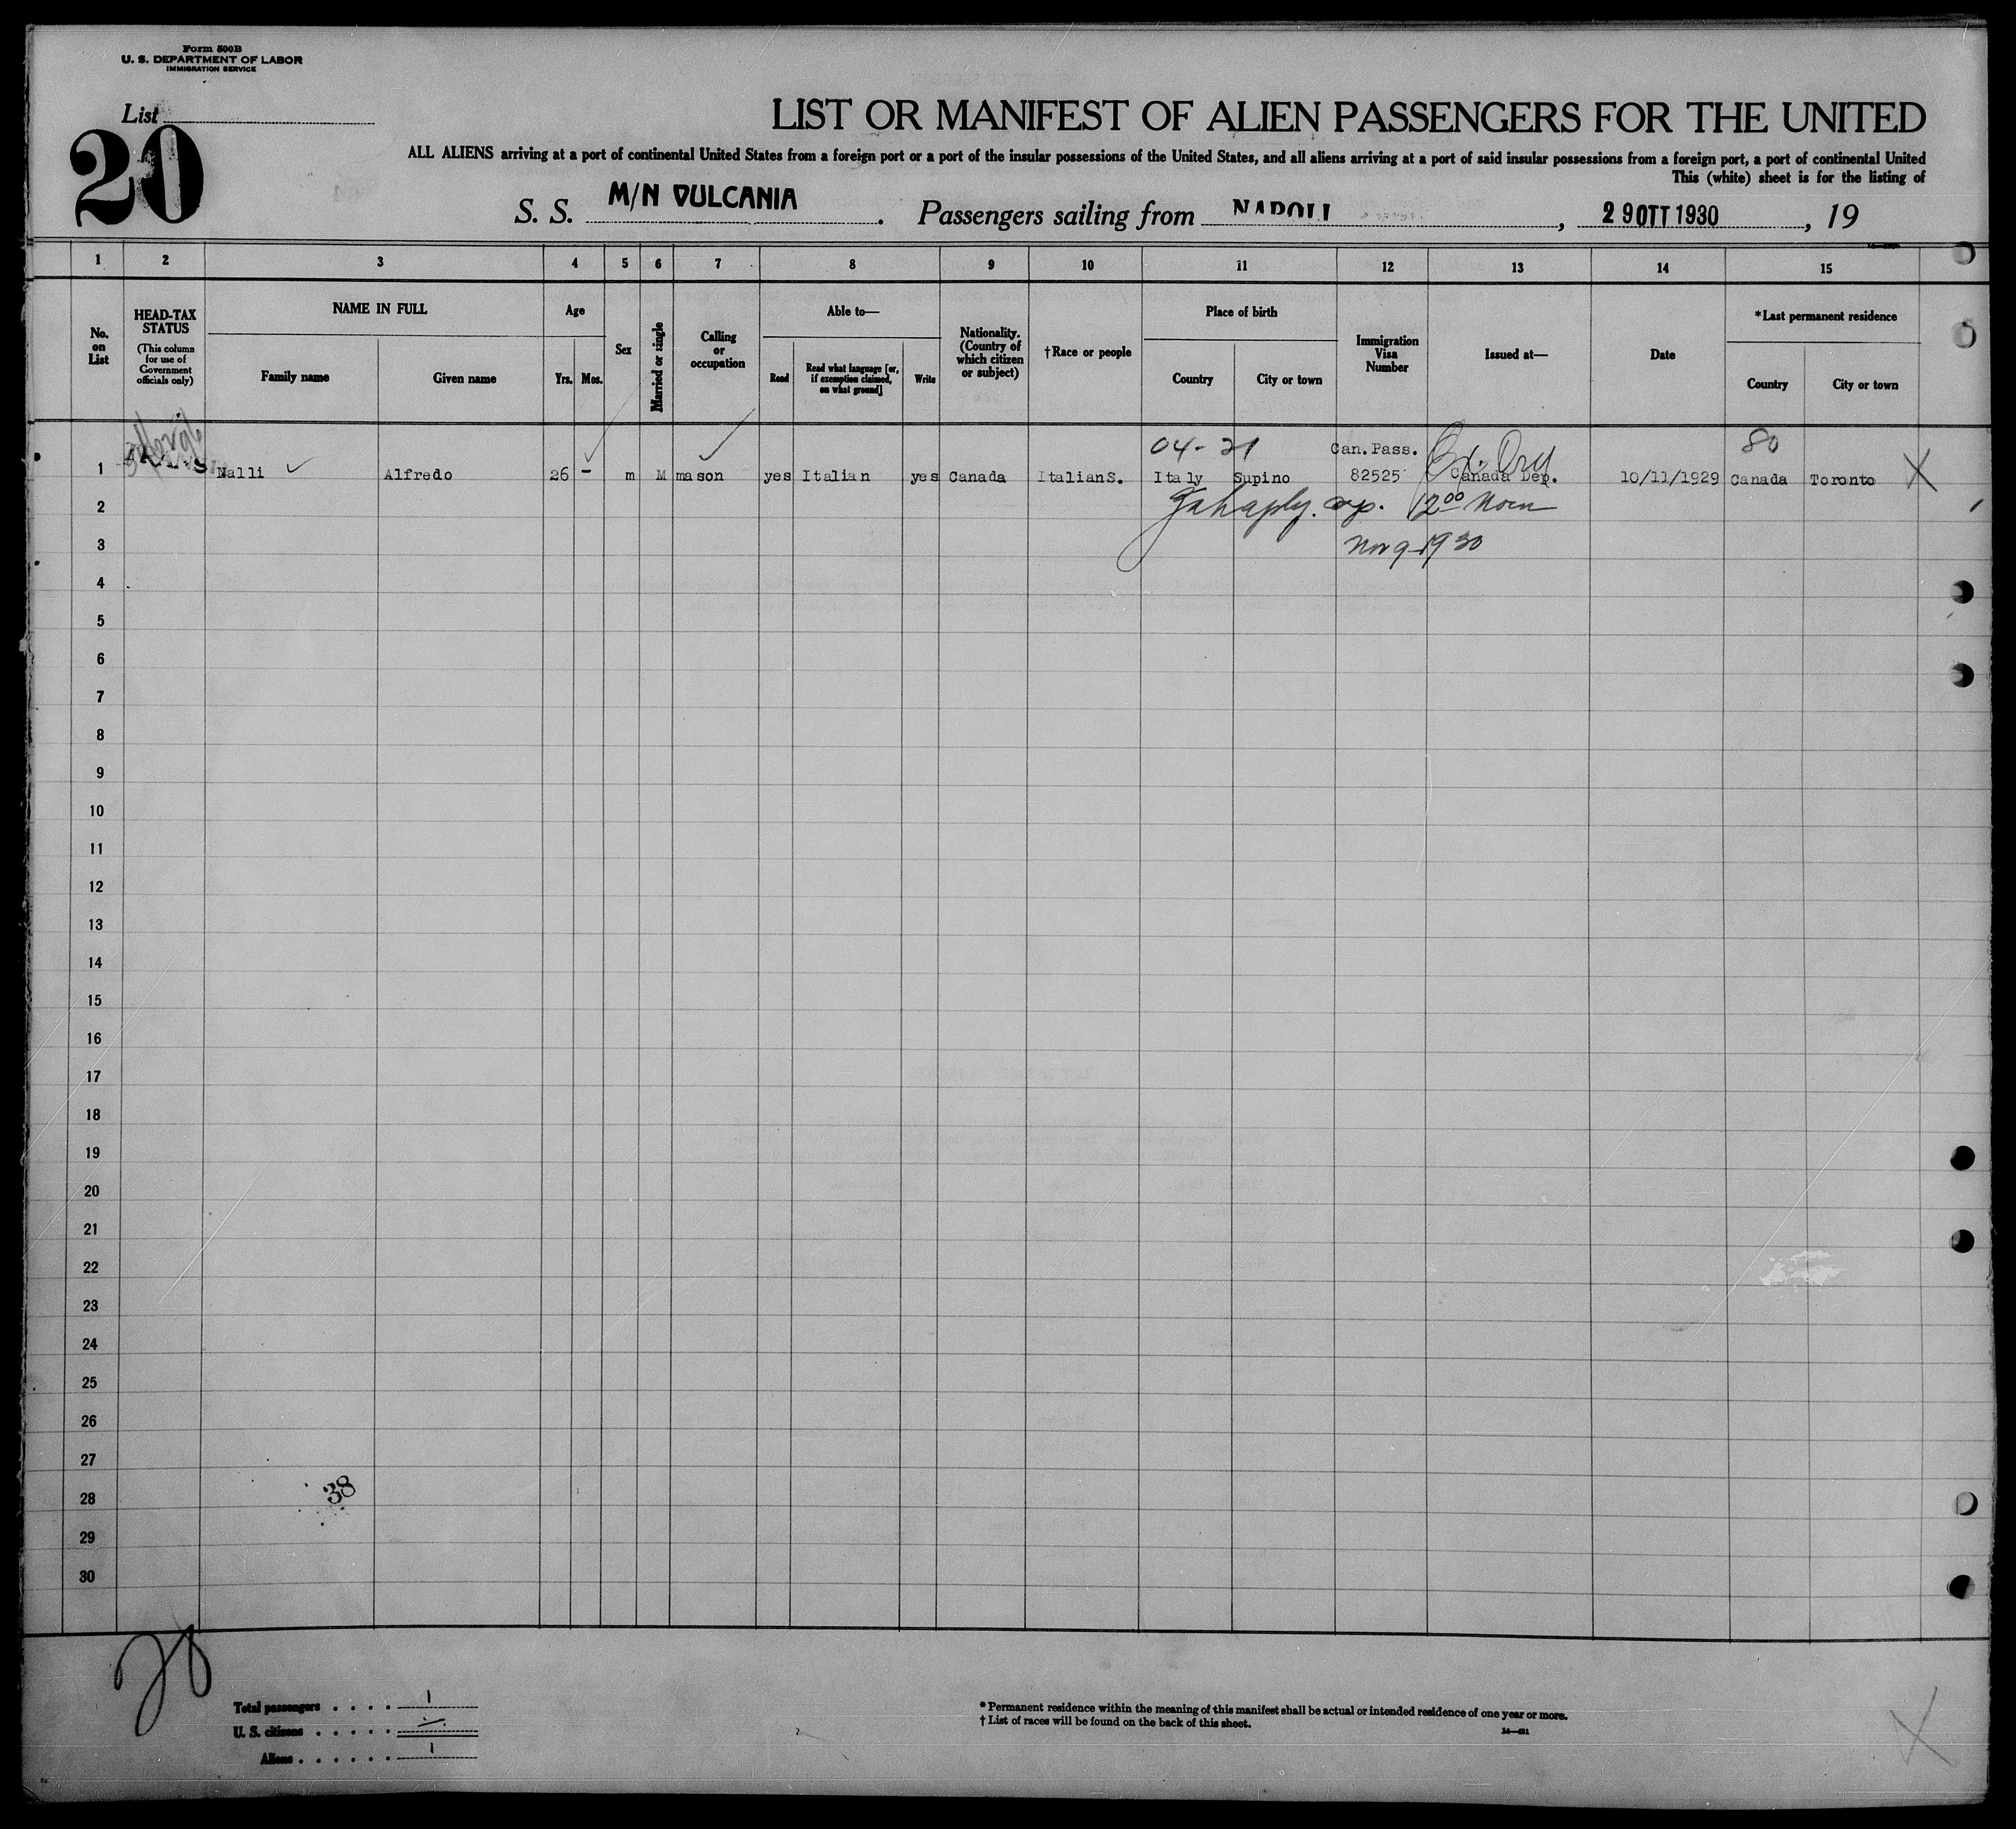 Form 500B
U. S. DEPARTMENT OF LABOR
IMMIGRATION SERVICE
List
20
LIST OR MANIFEST OF ALIEN PASSENGERS FOR THE UNITED
ALL ALIENS arriving at a port of continental United States from a foreign port or a port of the insular possessions of the United States, and all aliens arriving at a port of said insular possessions from a foreign port, a port of continental United
This (white) sheet is for the listing of
S. S. M/N VULCANIA. Passengers sailing from NAPOLI, 29 OTT 1930, 19
1 2 3 4 5 6 7 8 9 10 11 12 13 14 15
No. on List
HEAD-TAX STATUS
(This column for use of Government officials only)
NAME IN FULL
Family name
Given name
Age
Yrs. Mos.
Sex
Married or single
Calling or occupation
Able to—
Read
Read what language [or, if exemption claimed, on what ground]
Write
Nationality. (Country of which citizen or subject)
†Race or people
Place of birth
Country
City or town
Immigration Visa Number
Issued at—
Date
*Last permanent residence
Country
City or town
04-21 Can. Pass. 80
1 Nalli Alfredo 26 - m M mason yes Italian yes Canada Italian S. Italy Supino 82525 Canada Dep. 10/11/1929 Canada Toronto X
2 12 00 Noon
3 Nov 9-1930
4
5
6
7
8
9
10
11
12
13
14
15
16
17
18
19
20
21
22
23
24
25
26
27
28 38
29
30
Total passengers . . . . 1
U. S. citizens . . . . .
Aliens . . . . . . 1
* Permanent residence within the meaning of this manifest shall be actual or intended residence of one year or more.
† List of races will be found on the back of this sheet.
X